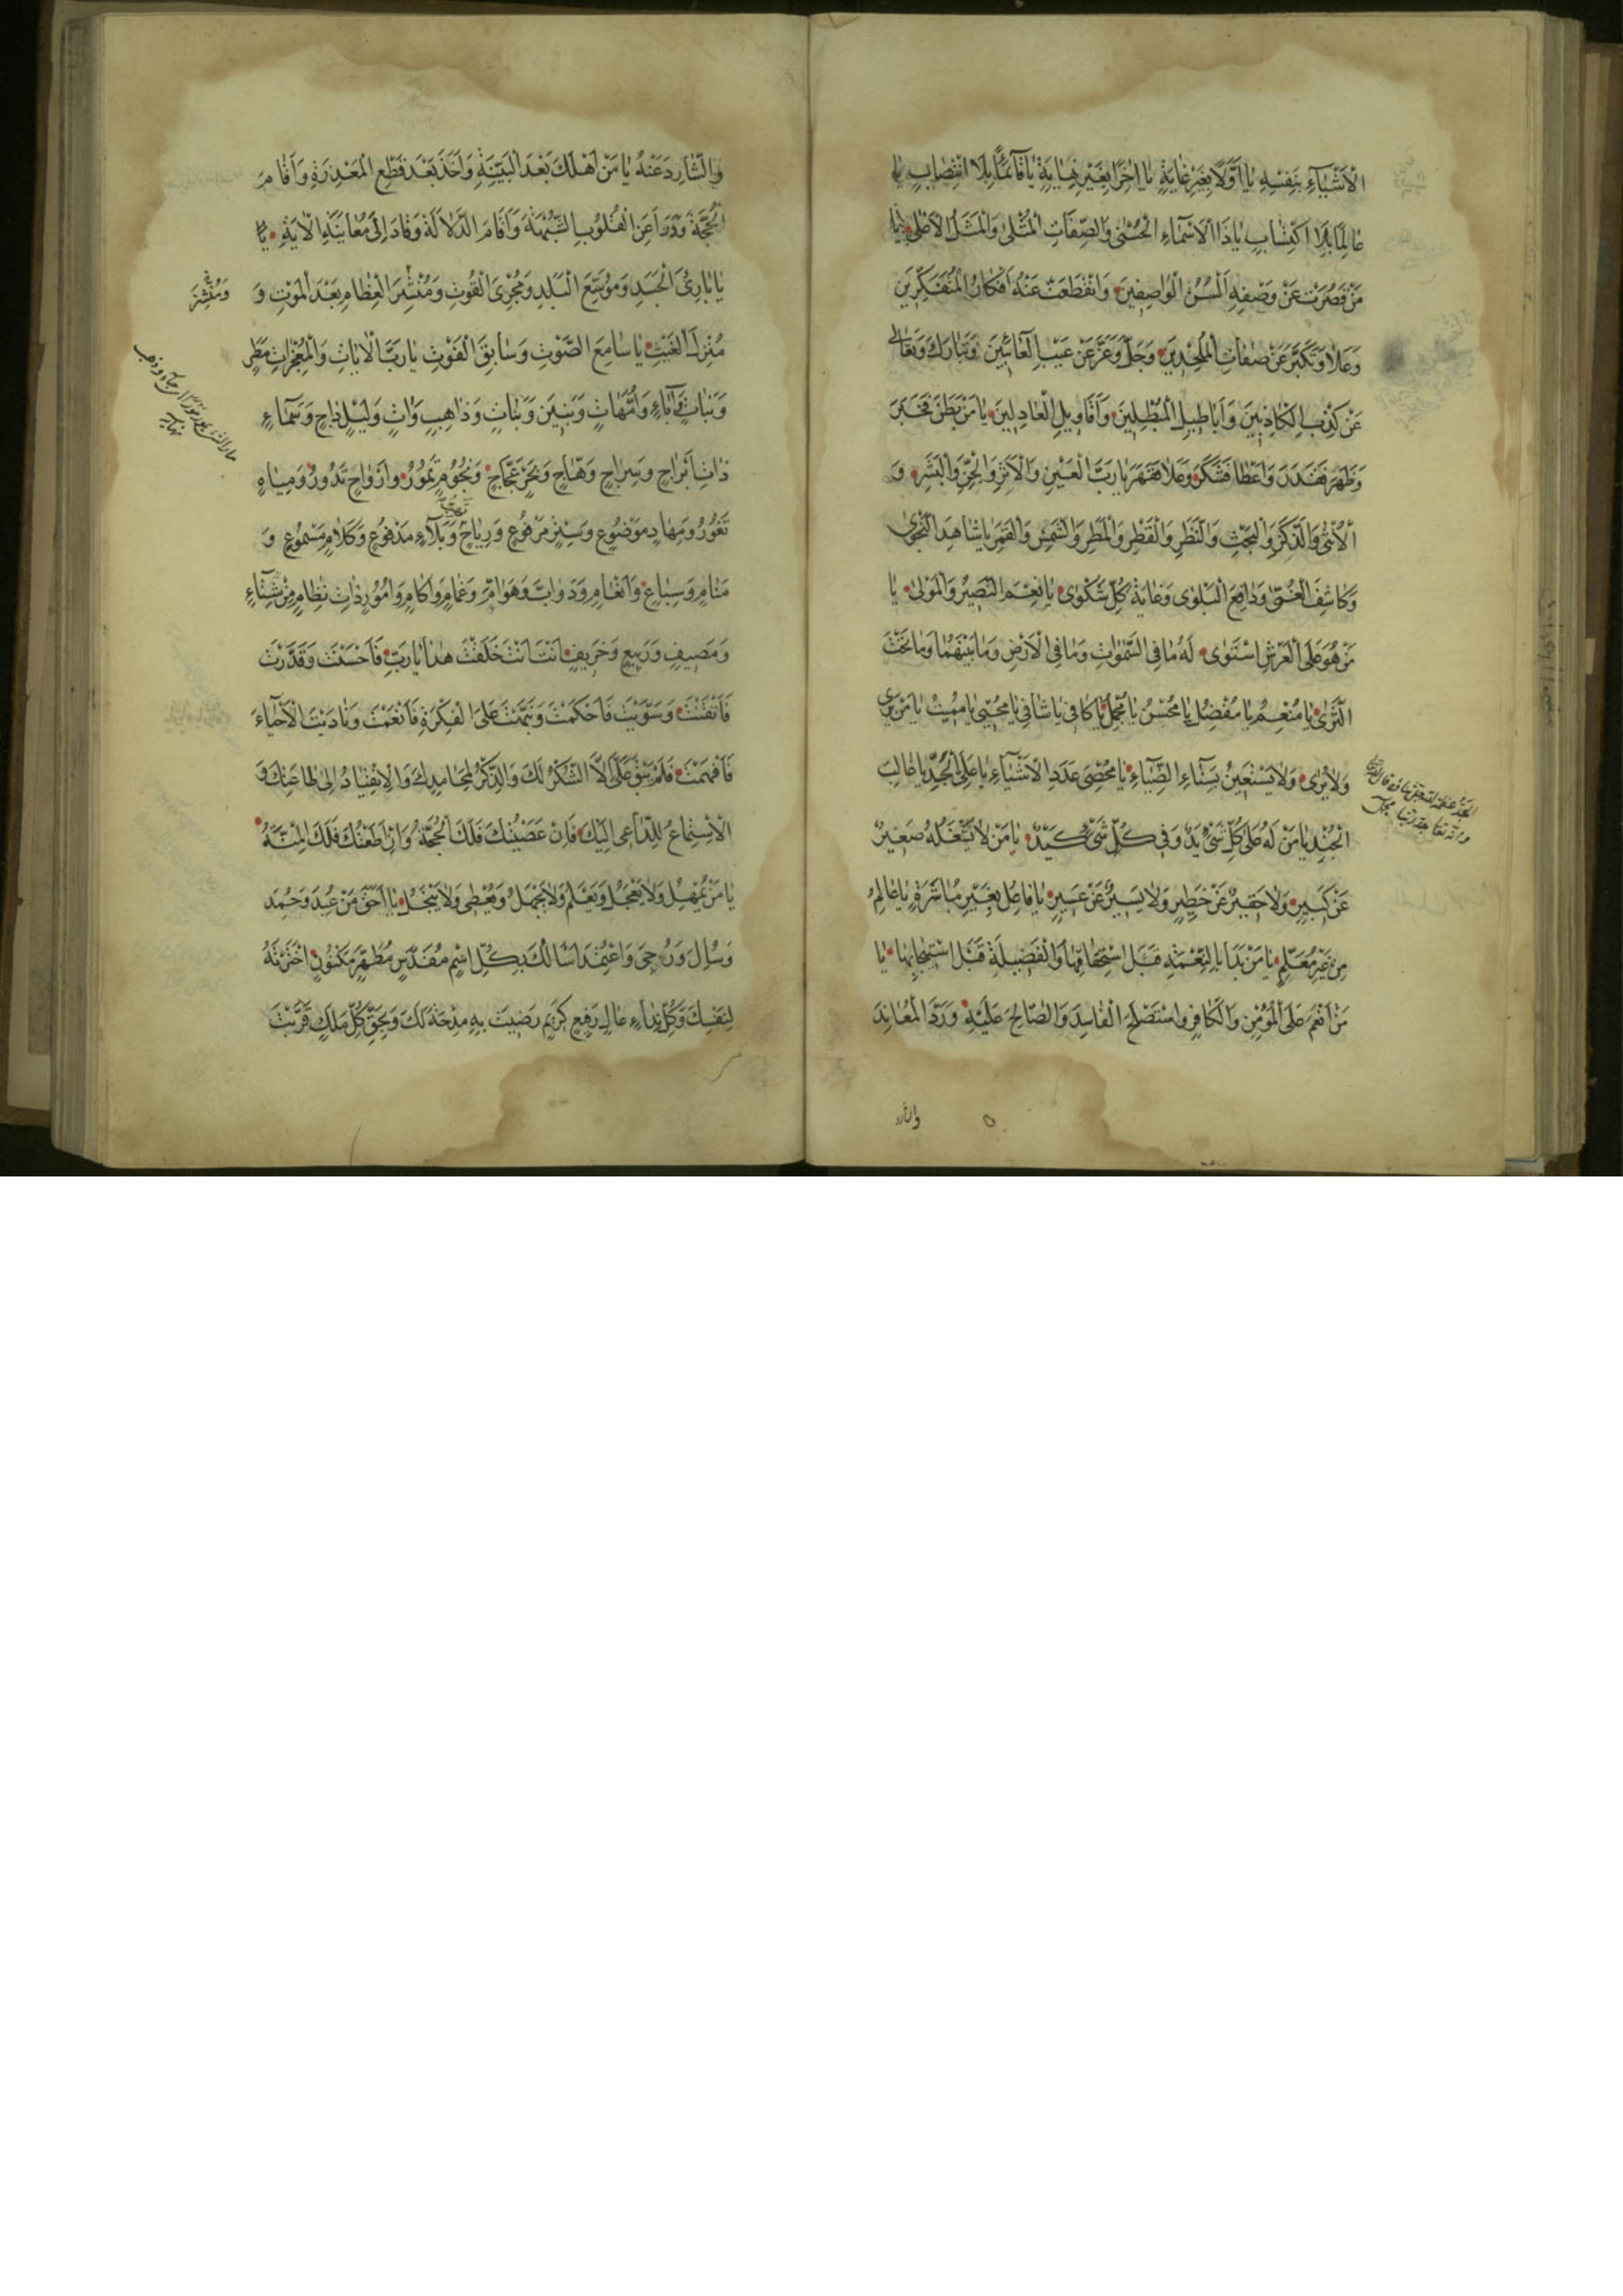 الْاَشْيَآءِ بِنَفْسِهِ يٰا اَوَّلًا بِغَيْرِ غٰايَةٍ يٰا اٰخِرًا بِغَيْرِ نِهٰايَةٍ يٰا قٰآئِمًا بِلَا انْتِصٰابٍ يٰا
عٰالِمًا بِلَا اكْتِسٰابٍ يٰا ذَا الْاَسْمٰاءِ الْحُسْنٰى وَالصِّفَاتِ الْمُثْلٰى وَالْمَثَلِ الْاَعْلٰى يٰا
مَنْ قَصُرَتْ عَنْ وَصْفِهِ اَلْسُنُ الْوٰاصِفِينَ وَانْقَطَعَتْ عَنْهُ اَفْكٰارُ الْمُتَفَكِّرِينَ
وَعَلٰا وَتَكَبَّرَ عَنْ صِفٰاتِ الْمُلْحِدِينَ وَجَلَّ وَعَزَّ عَنْ عَيْبِ الْعٰائِبِينَ وَتَبٰارَكَ وَتَعٰالٰى
عَنْ كَذِبِ الْكَاذِبِينَ وَاَبٰاطِيلِ الْمُبْطِلِينَ وَاَقٰاوِيلِ الْعٰادِلِينَ يٰا مَنْ بَطَنَ فَخَبَرَ
وَظَهَرَ فَقَدَرَ وَاَعْطٰا فَشَكَرَ وَعَلٰا فَقَهَرَ يٰا رَبَّ الْعَيْنِ وَالْاَثَرِ وَالْجِنِّ وَالْبَشَرِ وَ
الْاُنْثٰى وَالذَّكَرِ وَالْبَحْثِ وَالنَّظَرِ وَالْقَطْرِ وَالْمَطَرِ وَالشَّمْسِ وَالْقَمَرِ يٰا شٰاهِدَ النَّجْوٰى
وَكٰاشِفَ الْغُمّٰى وَدٰافِعَ الْبَلْوٰى وَغٰايَةَ كُلِّ شَكْوٰى يٰا نِعْمَ النَّصِيرُ وَالْمَوْلٰى يٰا
مَنْ هُوَ عَلَى الْعَرْشِ اسْتَوٰى لَهُ مٰا فِى السَّمٰوٰاتِ وَمٰا فِى الْاَرْضِ وَمٰا بَيْنَهُمٰا وَمٰا تَحْتَ
الثَّرٰى يٰا مُنْعِمُ يٰا مُفْضِلُ يٰا مُحْسِنُ يٰا مُجْمِلُ يٰا كٰافِى يٰا شٰافِى يٰا مُحْيِى يٰا مُمِيتُ يٰا مَنْ يَرٰى
وَلٰا يُرٰى وَلٰا يَسْتَعِينُ بِسَنٰاءِ الضِّيٰاءِ يٰا مُحْصِىَ عَدَدِ الْاَشْيٰآءِ يٰا عَلِىَّ الْجَدِّ يٰا غٰالِبَ
الْجُنْدِ يٰا مَنْ لَهُ عَلٰى كُلِّ شَىْءٍ يَدٌ وَفِى كُلِّ شَىْءٍ كَيْدٌ يٰا مَنْ لٰا يَشْغَلُهُ صَغِيرٌ
عَنْ كَبِيرٍ وَلٰا حَقِيرٌ عَنْ خَطِيرٍ وَلٰا يَسِيرٌ عَنْ عَسِيرٍ يٰا فٰاعِلُ بِغَيْرِ مُبٰاشَرَةٍ يٰا عٰالِمُ
مِنْ غَيْرِ مُعَلِّمٍ يٰا مَنْ بَدَاَ بِالنِّعْمَةِ قَبْلَ اسْتِحْقٰاقِهٰا وَالْفَضِيلَةِ قَبْلَ اسْتِيجٰابِهٰا يٰا
مَنْ اَنْعَمَ عَلَى الْمُؤْمِنِ وَالْكٰافِرِ وَاسْتَصْلَحَ الْفٰاسِدَ وَالصّٰالِحَ عَلَيْهِ وَرَدَّ الْمُعٰانِدَ
وَالشّٰارِدَ عَنْهُ يٰا مَنْ اَهْلَكَ بَعْدَ الْبَيِّنَةِ وَاَخَذَ بَعْدَ قَطْعِ الْمَعْذِرَةِ وَاَقٰامَ
الْحُجَّةَ وَدَرَاَ عَنِ الْقُلُوبِ الشُّبْهَةَ وَاَقٰامَ الدَّلٰالَةَ وَقٰادَ اِلٰى مُعٰايَنَةِ الْاٰيَةِ يٰا
يٰا بٰارِئَ الْجَسَدِ وَمُوَسِّعَ الْبَلَدِ وَمُجْرِىَ الْقُوتِ وَمُنْشِرَ الْعِظٰامِ بَعْدَ الْمَوْتِ وَ
مُنْزِلَ الْغَيْثِ يٰا سٰامِعَ الصَّوْتِ وَسٰابِقَ الْفَوْتِ يٰا رَبَّ الْاٰيٰاتِ وَالْمُعْجِزٰاتِ مَطَرٍ
وَنَبٰاتٍ وَاٰبٰاءٍ وَاُمَّهٰاتٍ وَبَنِينَ وَبَنٰاتٍ وَذٰاهِبٍ وَاٰتٍ وَلَيْلٍ دٰاجٍ وَسَمٰاءٍ
ذٰاتِ اَبْرٰاجٍ وَسِرٰاجٍ وَهّٰاجٍ وَبَحْرٍ عَجّٰاجٍ وَنُجُومٍ تَمُورُ وَاَرْوٰاحٍ تَدُورُ وَمِيٰاهٍ
تَغُورُ وَمِهٰادٍ مَوْضُوعٍ وَسِتْرٍ مَرْفُوعٍ وَرِيٰاحٍ وَبَلٰآءٍ مَدْفُوعٍ وَكَلٰامٍ مَسْمُوعٍ وَ
مَنٰامٍ وَسِبٰاعٍ وَاَنْعٰامٍ وَدَوٰابَّ وَهَوٰامَّ وَغَمٰامٍ وَاٰكٰامٍ وَاُمُورٍ ذٰاتِ نِظٰامٍ مِنْ شِتٰآءٍ
وَمَصِيفٍ وَرَبِيعٍ وَخَرِيفٍ اَنْتَ اَنْتَ خَلَقْتَ هٰذٰا يٰا رَبِّ فَاَحْسَنْتَ وَقَدَّرْتَ
فَاَتْقَنْتَ وَسَوَّيْتَ فَاَحْكَمْتَ وَنَبَّهْتَ عَلَى الْفِكْرَةِ فَاَنْعَمْتَ وَنٰادَيْتَ الْاَحْيٰاءَ
فَاَفْهَمْتَ فَلَمْ يَبْقَ عَلَىَّ اِلَّا الشُّكْرُ لَكَ وَالذِّكْرُ لِمَحٰامِدِكَ وَالْاِنْقِيٰادُ اِلٰى طٰاعَتِكَ وَ
الْاِسْتِمٰاعُ لِلدّٰاعِى اِلَيْكَ فَاِنْ عَصَيْتُكَ فَلَكَ الْحُجَّةُ وَاِنْ اَطَعْتُكَ فَلَكَ الْمِنَّةُ
يٰا مَنْ يُمْهِلُ وَلٰا يَعْجَلُ وَيَعْلَمُ وَلٰا يَجْهَلُ وَيُعْطِى وَلٰا يَبْخَلُ يٰا اَحَقَّ مَنْ عُبِدَ وَحُمِدَ
وَسُئِلَ وَرُجِىَ وَاعْتُمِدَ اَسْاَلُكَ بِكُلِّ اسْمٍ مُقَدَّسٍ مُطَهَّرٍ مَكْنُونٍ اخْتَرْتَهُ
لِنَفْسِكَ وَكُلِّ ثَنٰاءٍ عٰالٍ رَفِيعٍ كَرِيمٍ رَضِيتَ بِهِ مِدْحَةً لَكَ وَبِحَقِّ كُلِّ مَلَكٍ قَرَّبْتَ
وَمُنْشِرَ
والشارد